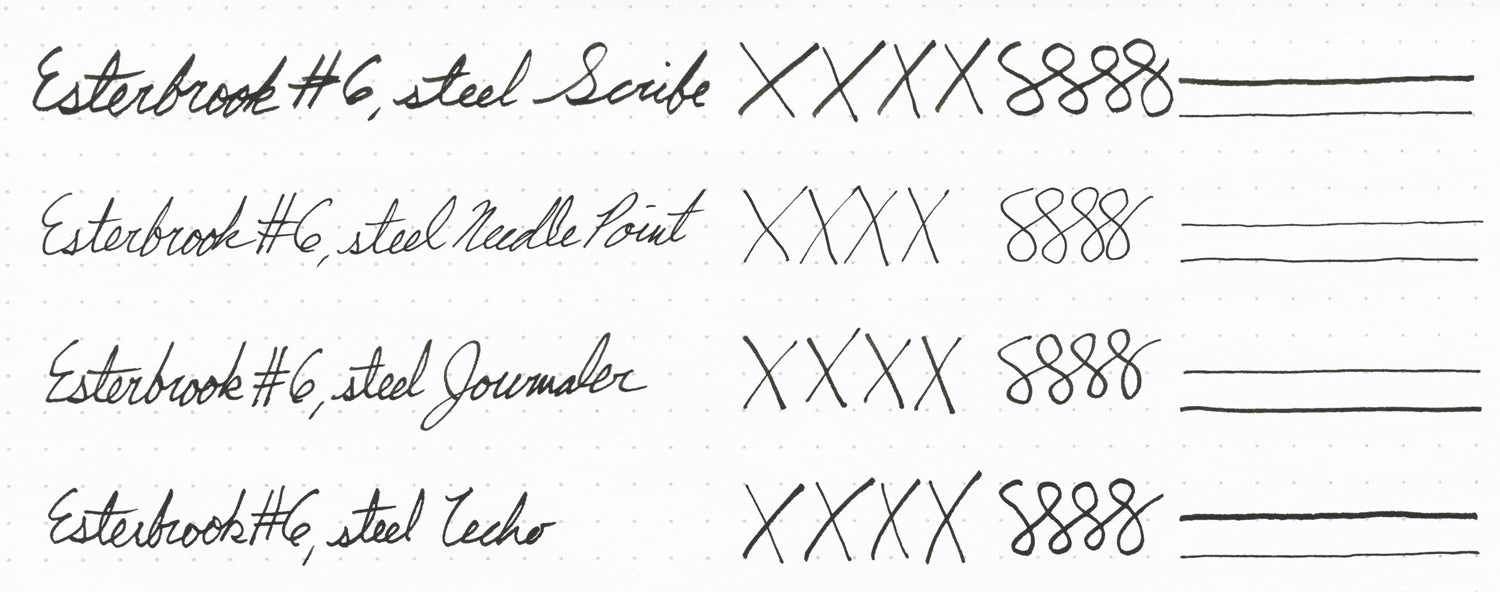 Esterbrook #6, steel Scribe XXXX 8888
Esterbrook #6, steel Needle Point XXXX 8888
Esterbrook #6, steel Journaler XXXX 8888
Esterbrook #6, steel Techo XXXX 8888